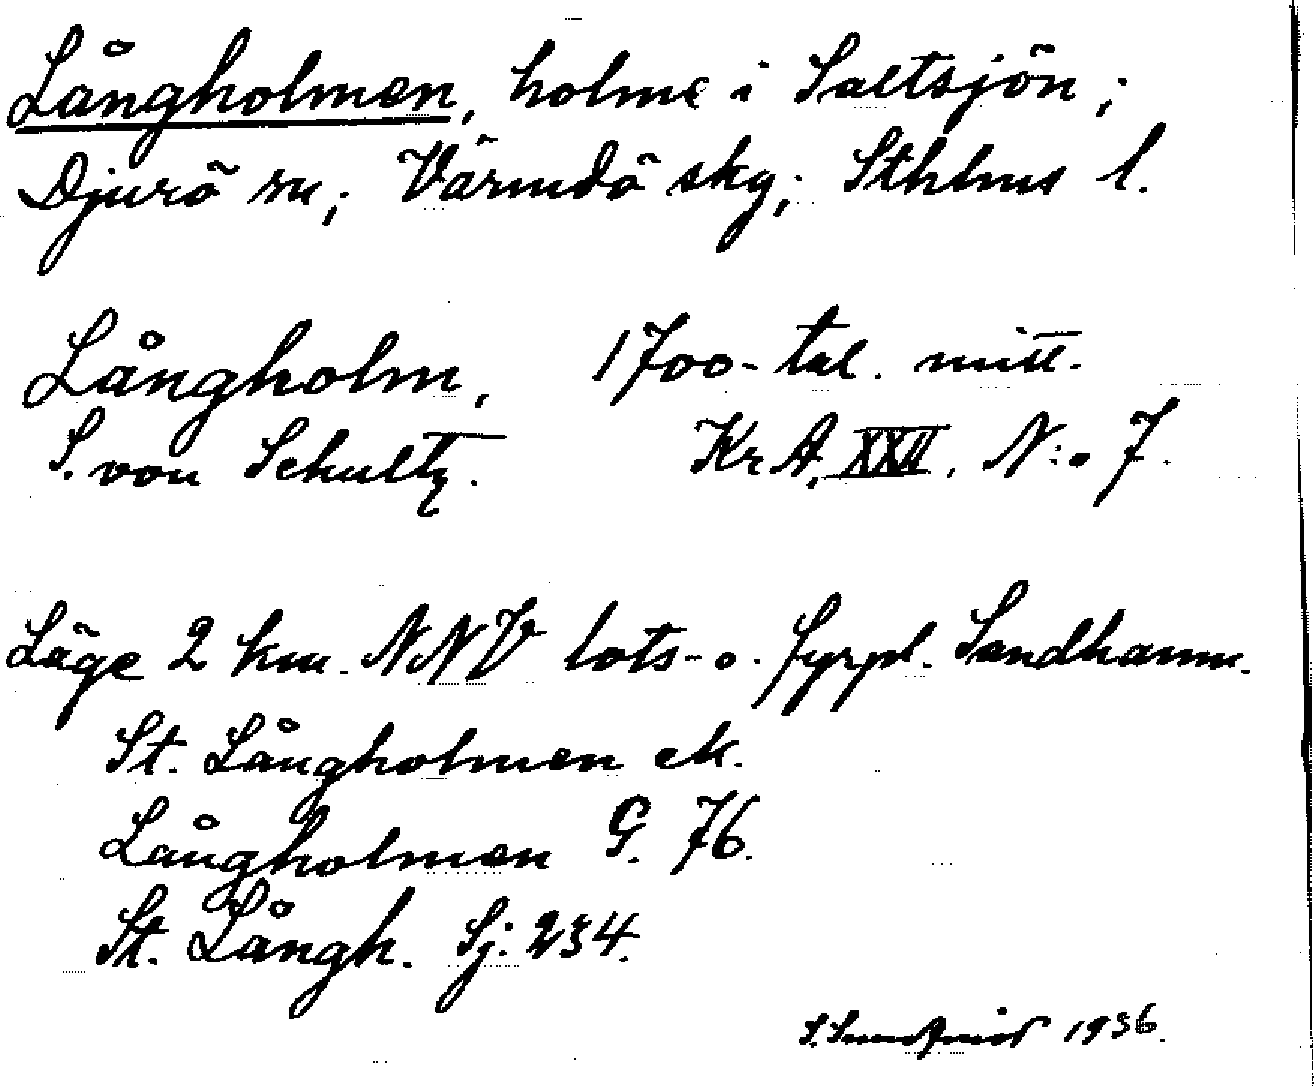 Långholmen, holme i Saltsjön;
Djurö sn; Värmdö skg; Sthlms l.
Långholm, 1700-tal. mitt.
S. von Schultz. KrA, XXII, N:o 7.
Läge 2 km. NNV lots- o. fyrpl. Sandhamn.
St. Långholmen ek.
Långholmen G. 76.
St. Långh. Sj: 234.
1936.